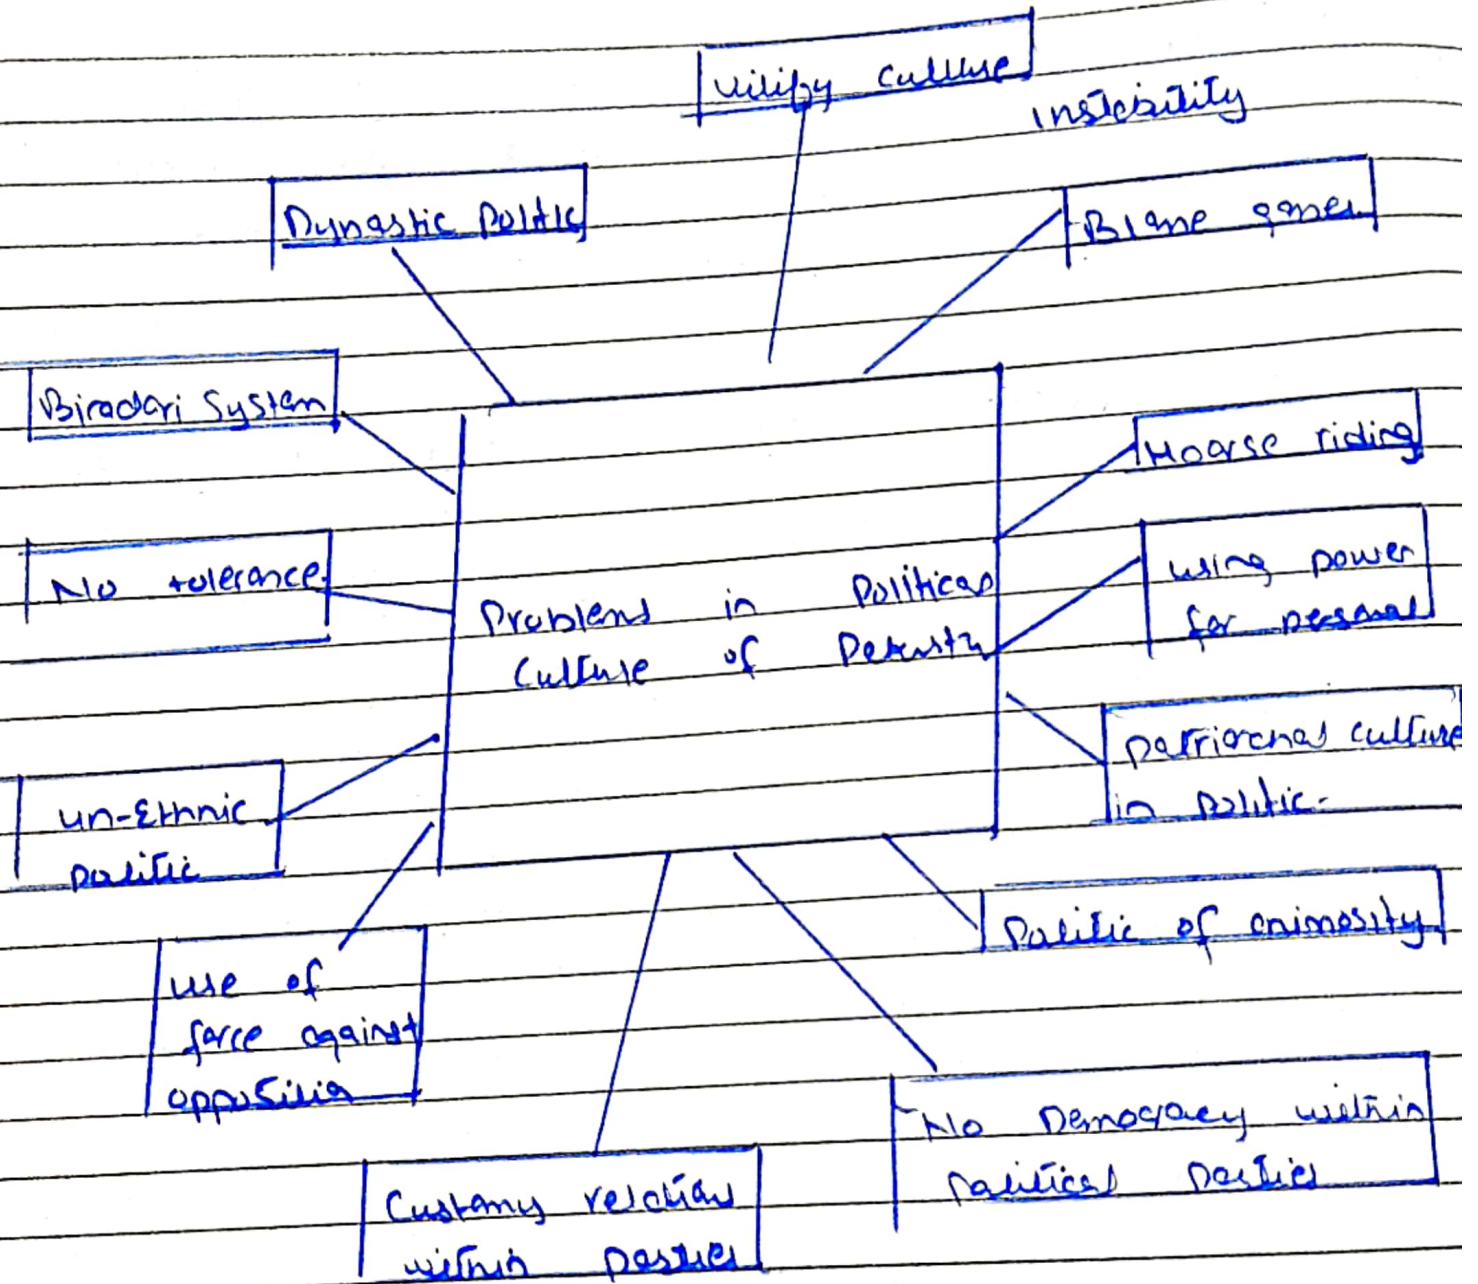 Vilify Culture
instability
Dynastic Politic
Blame games
Biradari System
Hoarse riding
No tolerance
using power
for personal
Problems in Political
Culture of
Patriarchal culture
in politic.
un-Ethnic
politic
Politic of animosity
use of
force against
opposition
No Democracy within
Political Parties
relation
within parties